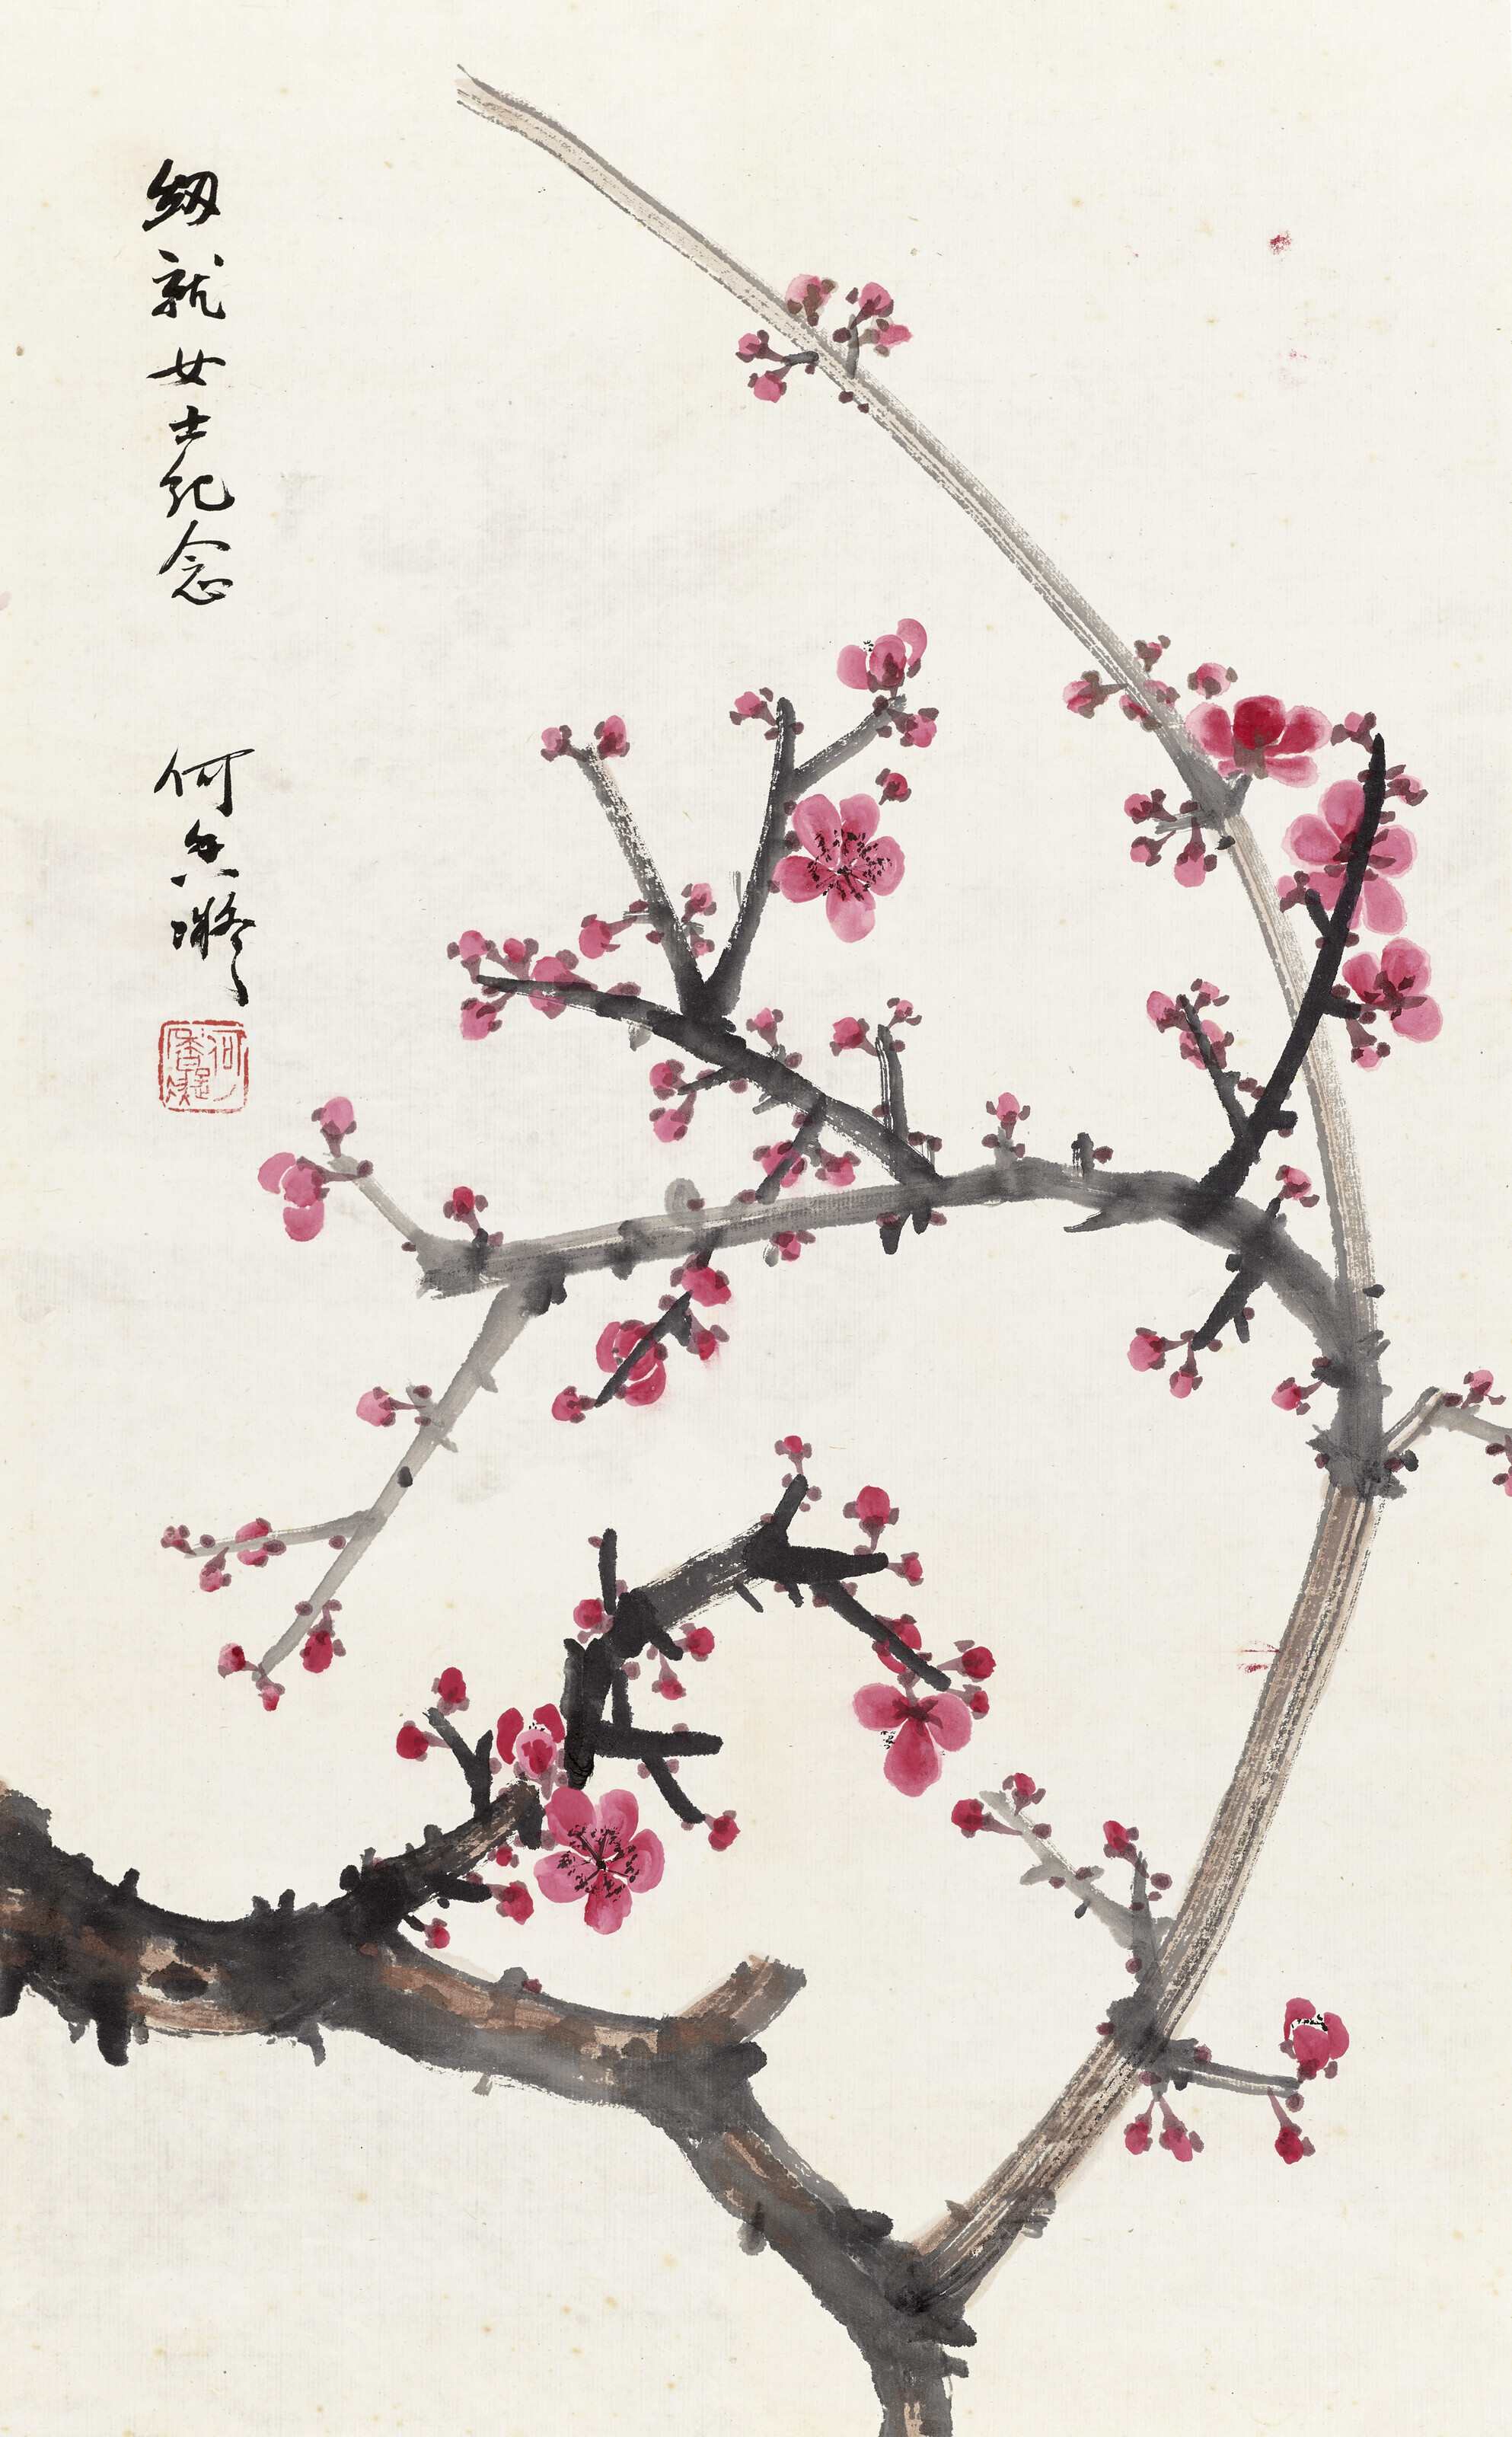 紉就女士紀念
何香凝
何香凝